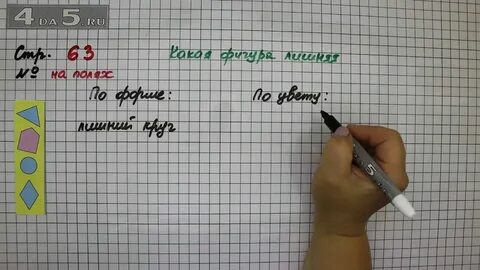 4DA5.RU
Стр. 63
Какая фигура лишняя
№ на полях
По форме:
По цвету:
лишний круг
5